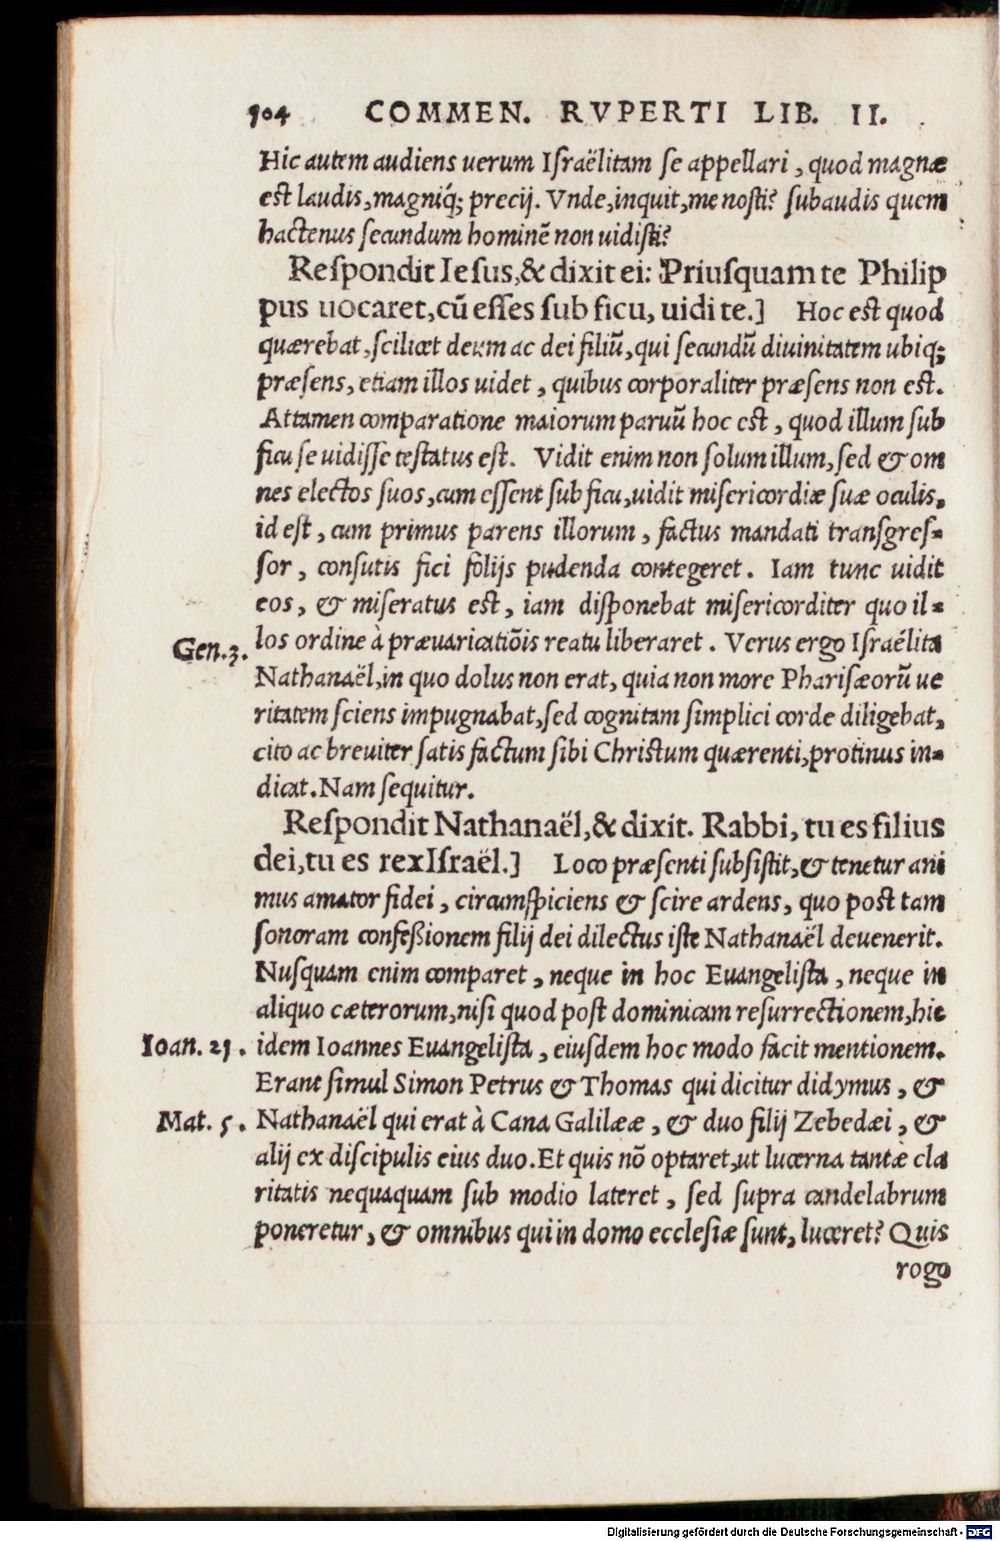 504 COMMEN. RVPERTI LIB. II.
Hic autem audiens uerum Iſraëlitam ſe appellari, quod magnæ
est laudis, magniq́; precij. Vnde, inquit, me nosti? ſubaudis quem
hactenus ſecundum hominẽ non uidiſti?
Reſpondit Ieſus, & dixit ei: Priuſquam te Philip
pus uocaret, cũ eſſes ſub ficu, uidi te.] Hoc est quod
quærebat, ſcilicet deum ac dei filiũ, qui ſecundũ diuinitatem ubiq;
præſens, etiam illos uidet, quibus corporaliter præſens non est.
Attamen comparatione maiorum paruũ hoc est, quod illum ſub
ficu ſe uidiſſe teſtatus eſt. Vidit enim non ſolum illum, ſed & om
nes electos ſuos, cum eſſent ſub ficu, uidit miſericordiæ ſuæ oculis,
id eſt, cum primus parens illorum, factus mandati tranſgreſ-
ſor, conſutis fici folijs pudenda contegeret. Iam tunc uidit
eos, & miſeratus est, iam diſponebat miſericorditer quo il-
Gen. 3. los ordine à præuaricatiõis reatu liberaret. Verus ergo Iſraëlita
Nathanaël, in quo dolus non erat, quia non more Phariſæorũ ue
ritatem ſciens impugnabat, ſed cognitam ſimplici corde diligebat,
cito ac breuiter ſatis factum ſibi Chriſtum quærenti, protinus in-
dicat. Nam ſequitur.
Reſpondit Nathanaël, & dixit. Rabbi, tu es filius
dei, tu es rex Iſraël.] Loco præſenti ſubſiſtit, & tenetur ani
mus amator fidei, circumſpiciens & ſcire ardens, quo post tam
ſonoram confeßionem filij dei dilectus iſte Nathanaël deuenerit.
Nuſquam enim comparet, neque in hoc Euangeliſta, neque in
aliquo cæterorum, niſi quod poſt dominicam reſurrectionem, hic
Ioan. 21. idem Ioannes Euangeliſta, eiuſdem hoc modo facit mentionem.
Erant ſimul Simon Petrus & Thomas qui dicitur didymus, &
Mat. 5. Nathanaël qui erat à Cana Galilææ, & duo filij Zebedæi, &
alij ex diſcipulis eius duo. Et quis nõ optaret, ut lucerna tantæ cla
ritatis nequaquam ſub modio lateret, ſed ſupra candelabrum
poneretur, & omnibus qui in domo eccleſiæ ſunt, luceret? Quis
rogo
Digitalisierung gefördert durch die Deutsche Forschungsgemeinschaft - DFG